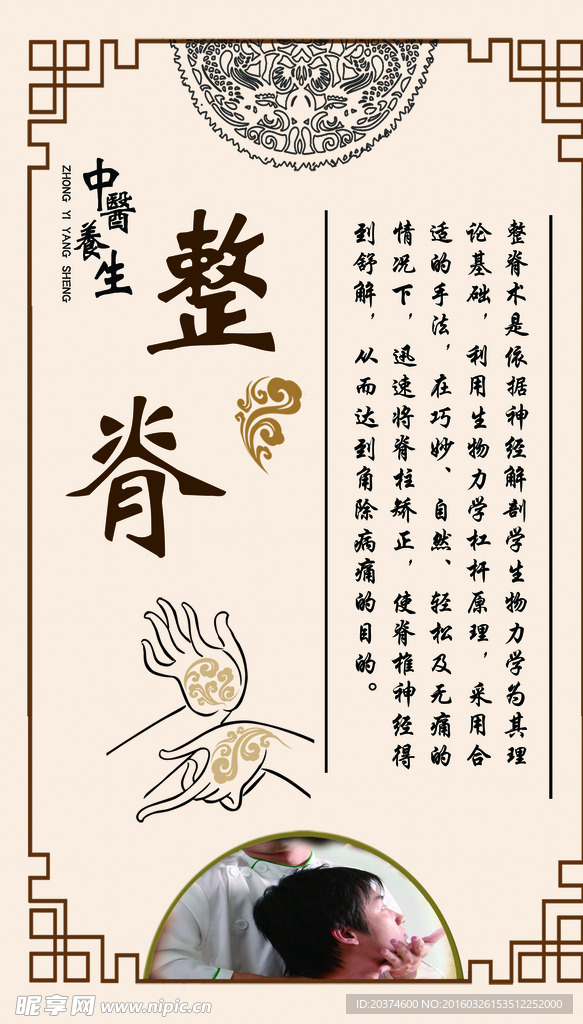 中醫養生
ZHONG YI YANG SHENG
整脊
整脊术是依据神经解剖学生物力学为其理
论基础，利用生物力学杠杆原理，采用合
适的手法，在巧妙、自然、轻松及无痛的
情况下，迅速将脊柱矫正，使脊椎神经得
到舒解，从而达到角除病痛的目的。
昵享网 www.nipic.cn
ID:20374600 NO:20160326153512252000